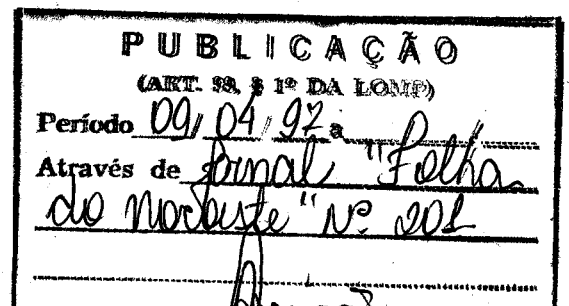 PUBLICAÇÃO
(ART. 98, § 1º DA LOMP)
Período 09/04/92 a
Através de Jornal "Folha
do Nordeste" Nº 201